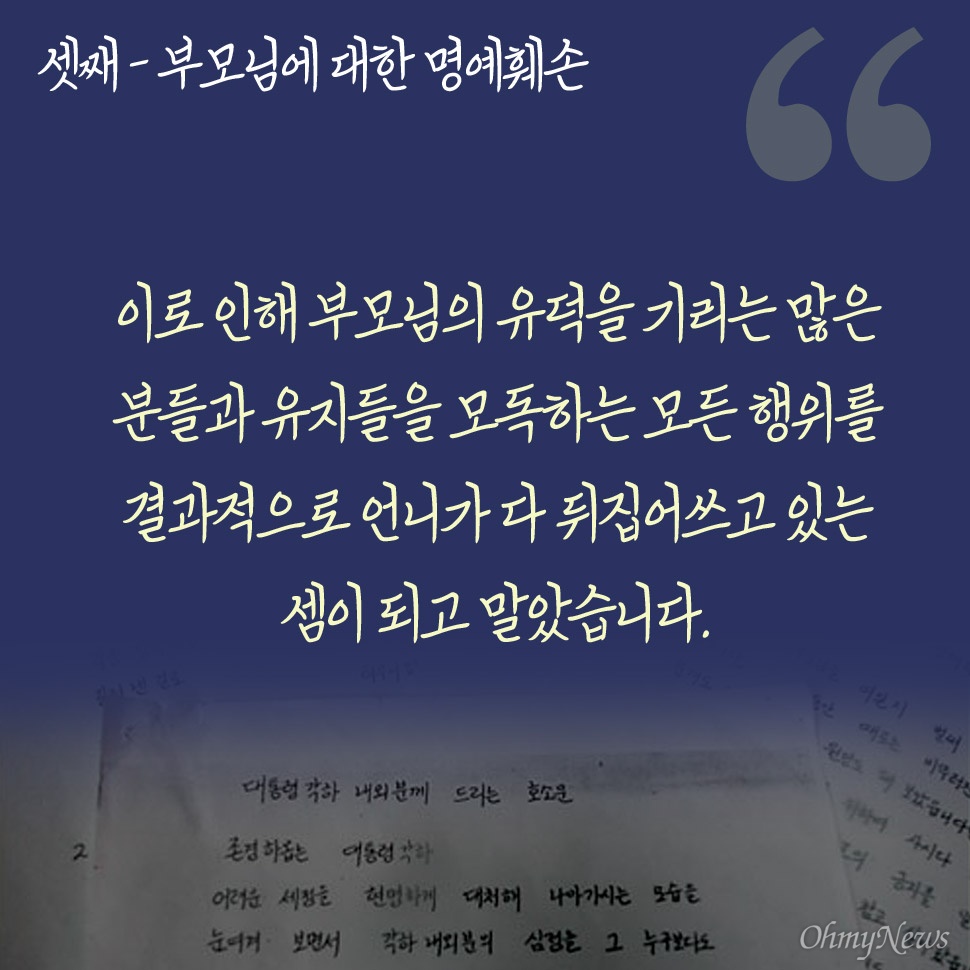 셋째 - 부모님에 대한 명예훼손
이로 인해 부모님의 유덕을 기리는 많은
분들과 유지들을 모독하는 모든 행위를
결과적으로 언니가 다 뒤집어쓰고 있는
셈이 되고 말았습니다.
대통령 각하 내외분께 드리는 호소문
2
존경하옵는 대통령 각하
어려운 세정을 현명하게 대처해 나아가시는 모습을
눈여겨 보면서 각하 내외분의 심정을 그 누구보다도
OhmyNews